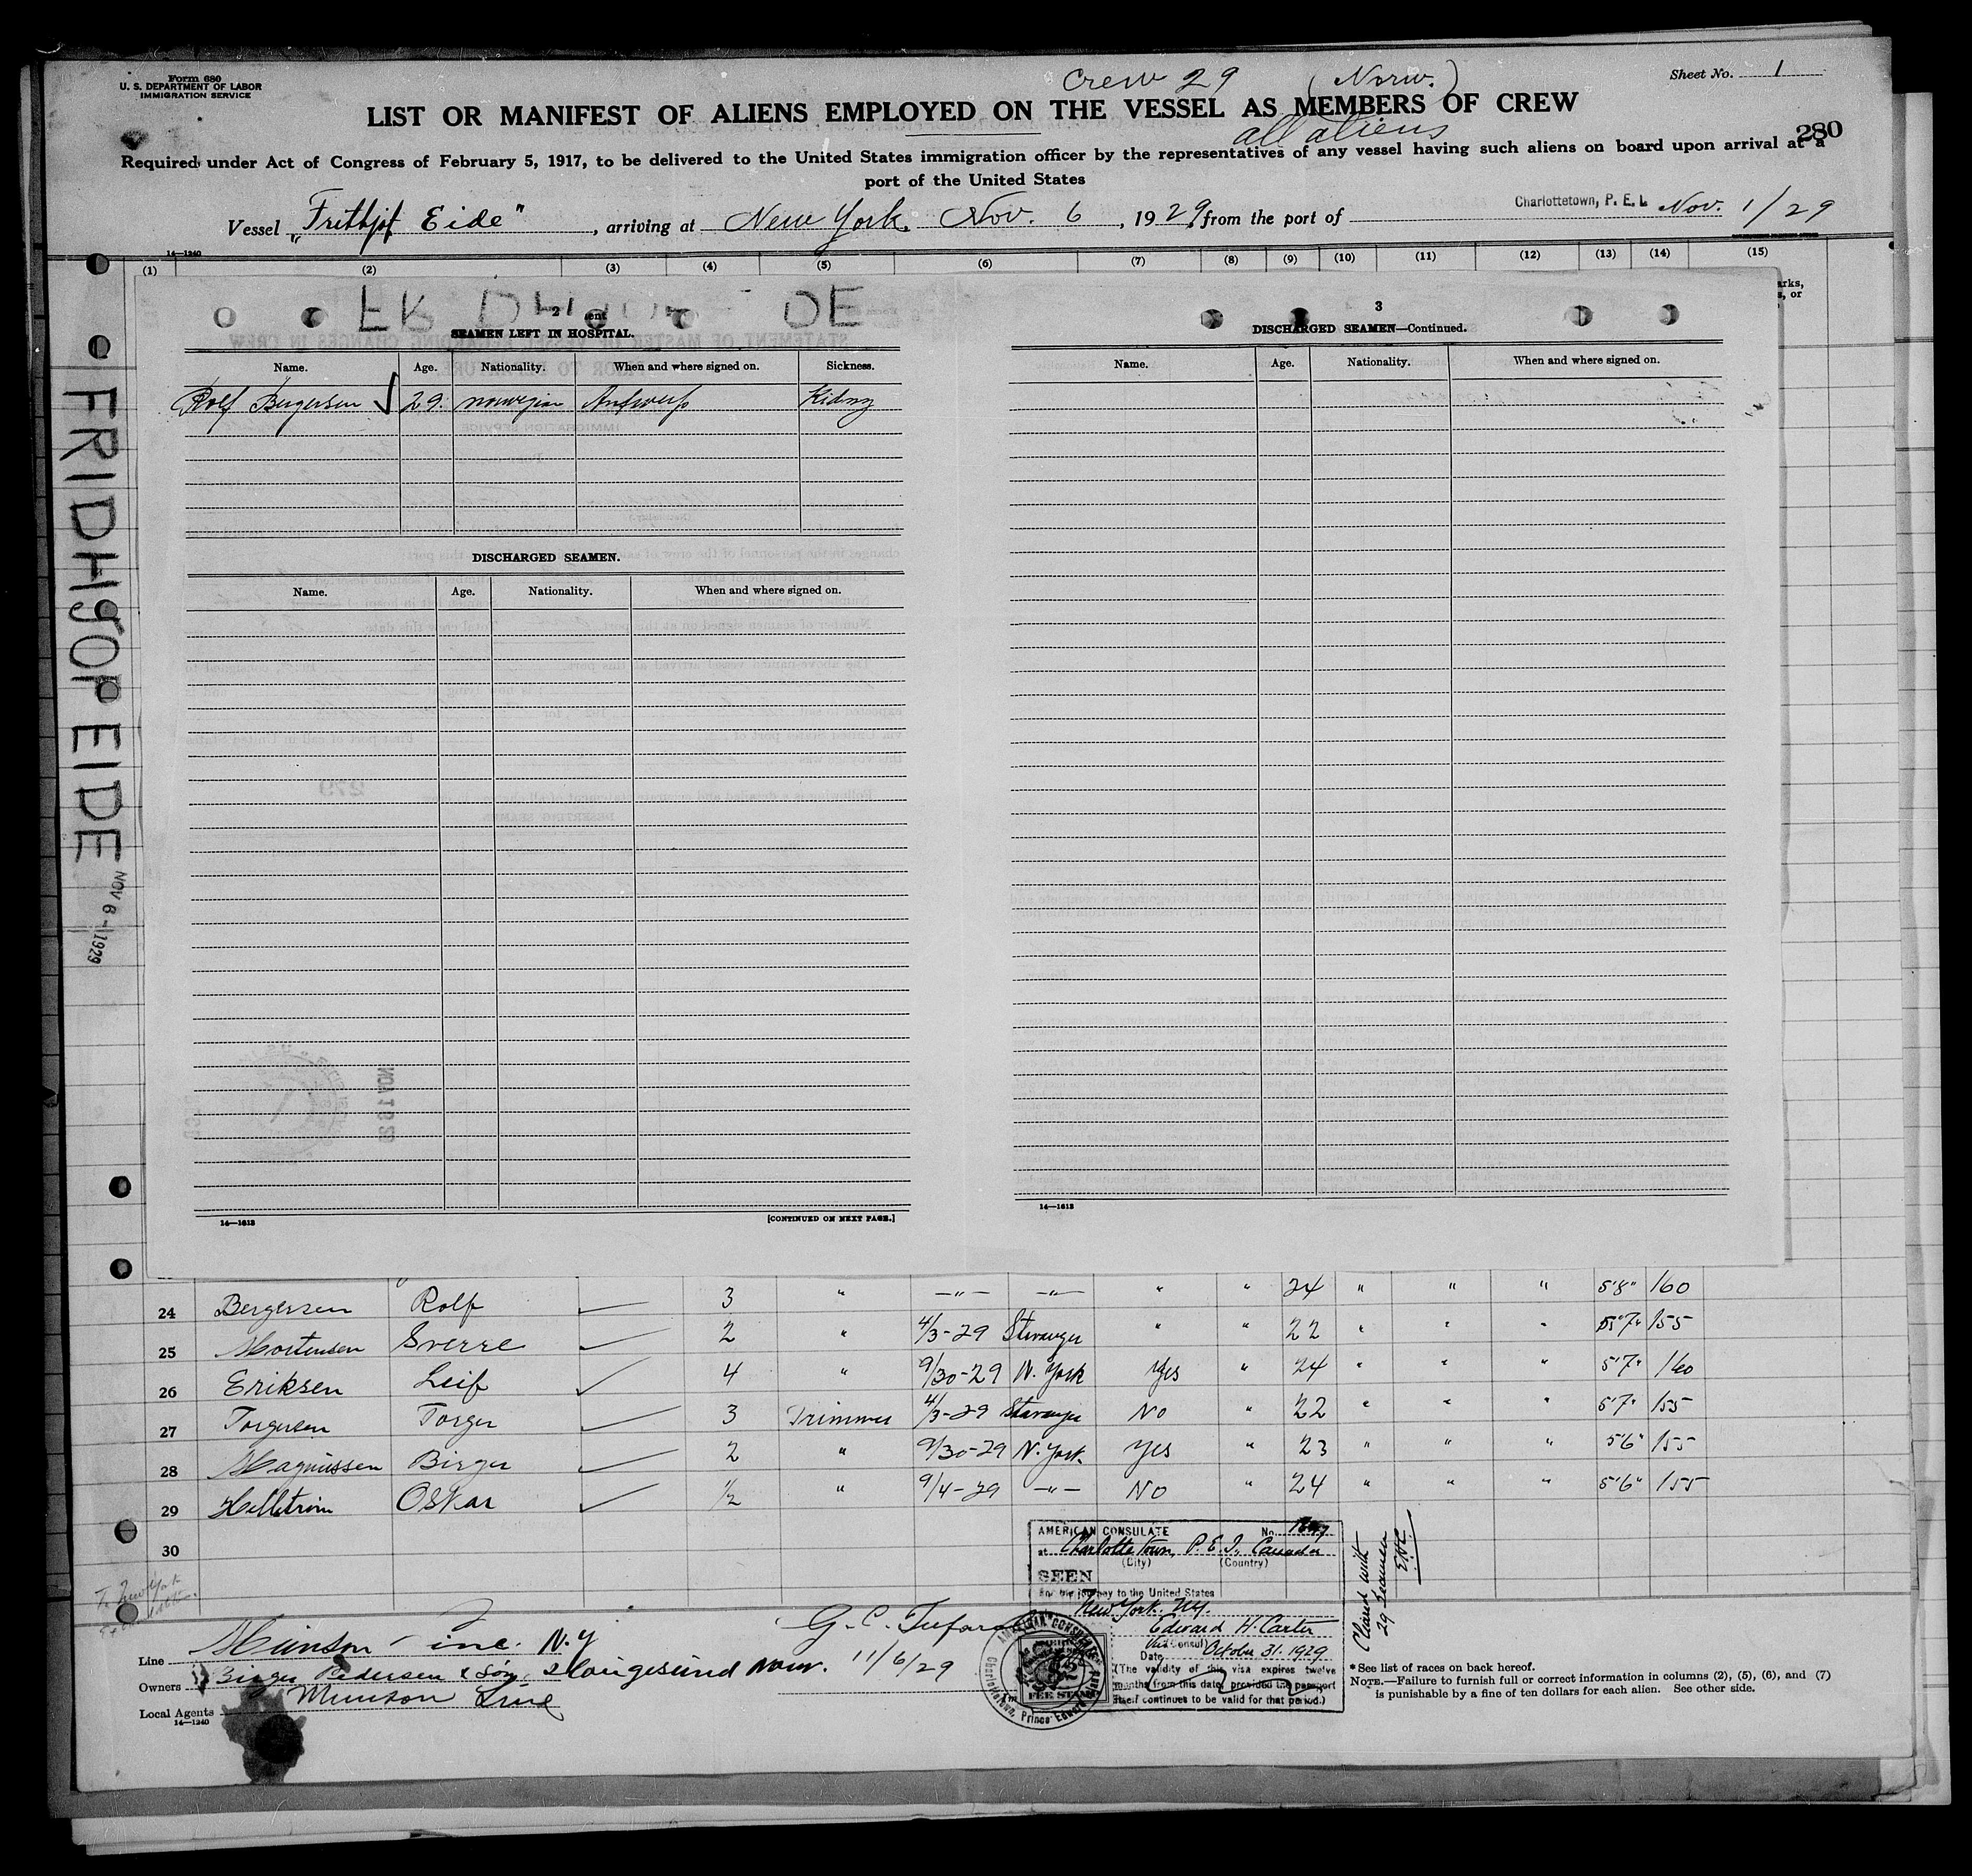 Form 680
U. S. DEPARTMENT OF LABOR
IMMIGRATION SERVICE
Crew 29 (Norw.)
Sheet No. 1
LIST OR MANIFEST OF ALIENS EMPLOYED ON THE VESSEL AS MEMBERS OF CREW
all aliens
280
Required under Act of Congress of February 5, 1917, to be delivered to the United States immigration officer by the representatives of any vessel having such aliens on board upon arrival at a
port of the United States
Vessel "Frithjof Eide", arriving at New York, Nov. 6, 1929, from the port of Charlottetown, P. E. I. Nov. 1/29
14—1240
(1) (2) (3) (4) (5) (6) (7) (8) (9) (10) (11) (12) (13) (14) (15)
2
SEAMEN LEFT IN HOSPITAL.
Name. Age. Nationality. When and where signed on. Sickness.
Rolf Bergersen 29. norwegian Antwerp Kidny
DISCHARGED SEAMEN.
Name. Age. Nationality. When and where signed on.
14—1613
[CONTINUED ON NEXT PAGE.]
3
DISCHARGED SEAMEN—Continued.
Name. Age. Nationality. When and where signed on.
14—1613
FRIDHJOF EIDE NOV 6 - 1929
279
24 Bergersen Rolf 3 " —"— —"— " " 24 " " " 5'8" 160
25 Mortensen Sverre 2 " 4/3-29 Stavanger " " 22 " " " 5'7" 155
26 Eriksen Leif 4 " 9/30-29 N. York Yes " 24 " " " 5'7" 160
27 Torgersen Torger 3 Trimmer 4/3-29 Stavanger No " 22 " " " 5'7" 155
28 Magnussen Birger 2 " 9/30-29 N. York Yes " 23 " " " 5'6" 155
29 Hellstrom Oskar 1/2 " 9/4-29 —"— No " 24 " " " 5'6" 155
30
AMERICAN CONSULATE No.
at Charlottetown, P. E. I. Canada
(City) (Country)
SEEN
For the journey to the United States
New York. N.Y.
Edward H. Carter
Vice Consul
Date October 31. 1929
(The validity of this visa expires twelve
months from this date, provided the passport
itself continues to be valid for that period.)
AMERICAN CONSULAR
Charlottetown, Prince Edward
$2
FEE STAMP
Cleared with
29 Seamen
Line Munson - inc. N.Y
G. C.
11/6/29
Owners Birger Pedersen & Søn, Haugesund Norw.
Local Agents Munson Line
14—1240
* See list of races on back hereof.
NOTE.—Failure to furnish full or correct information in columns (2), (5), (6), and (7)
is punishable by a fine of ten dollars for each alien. See other side.